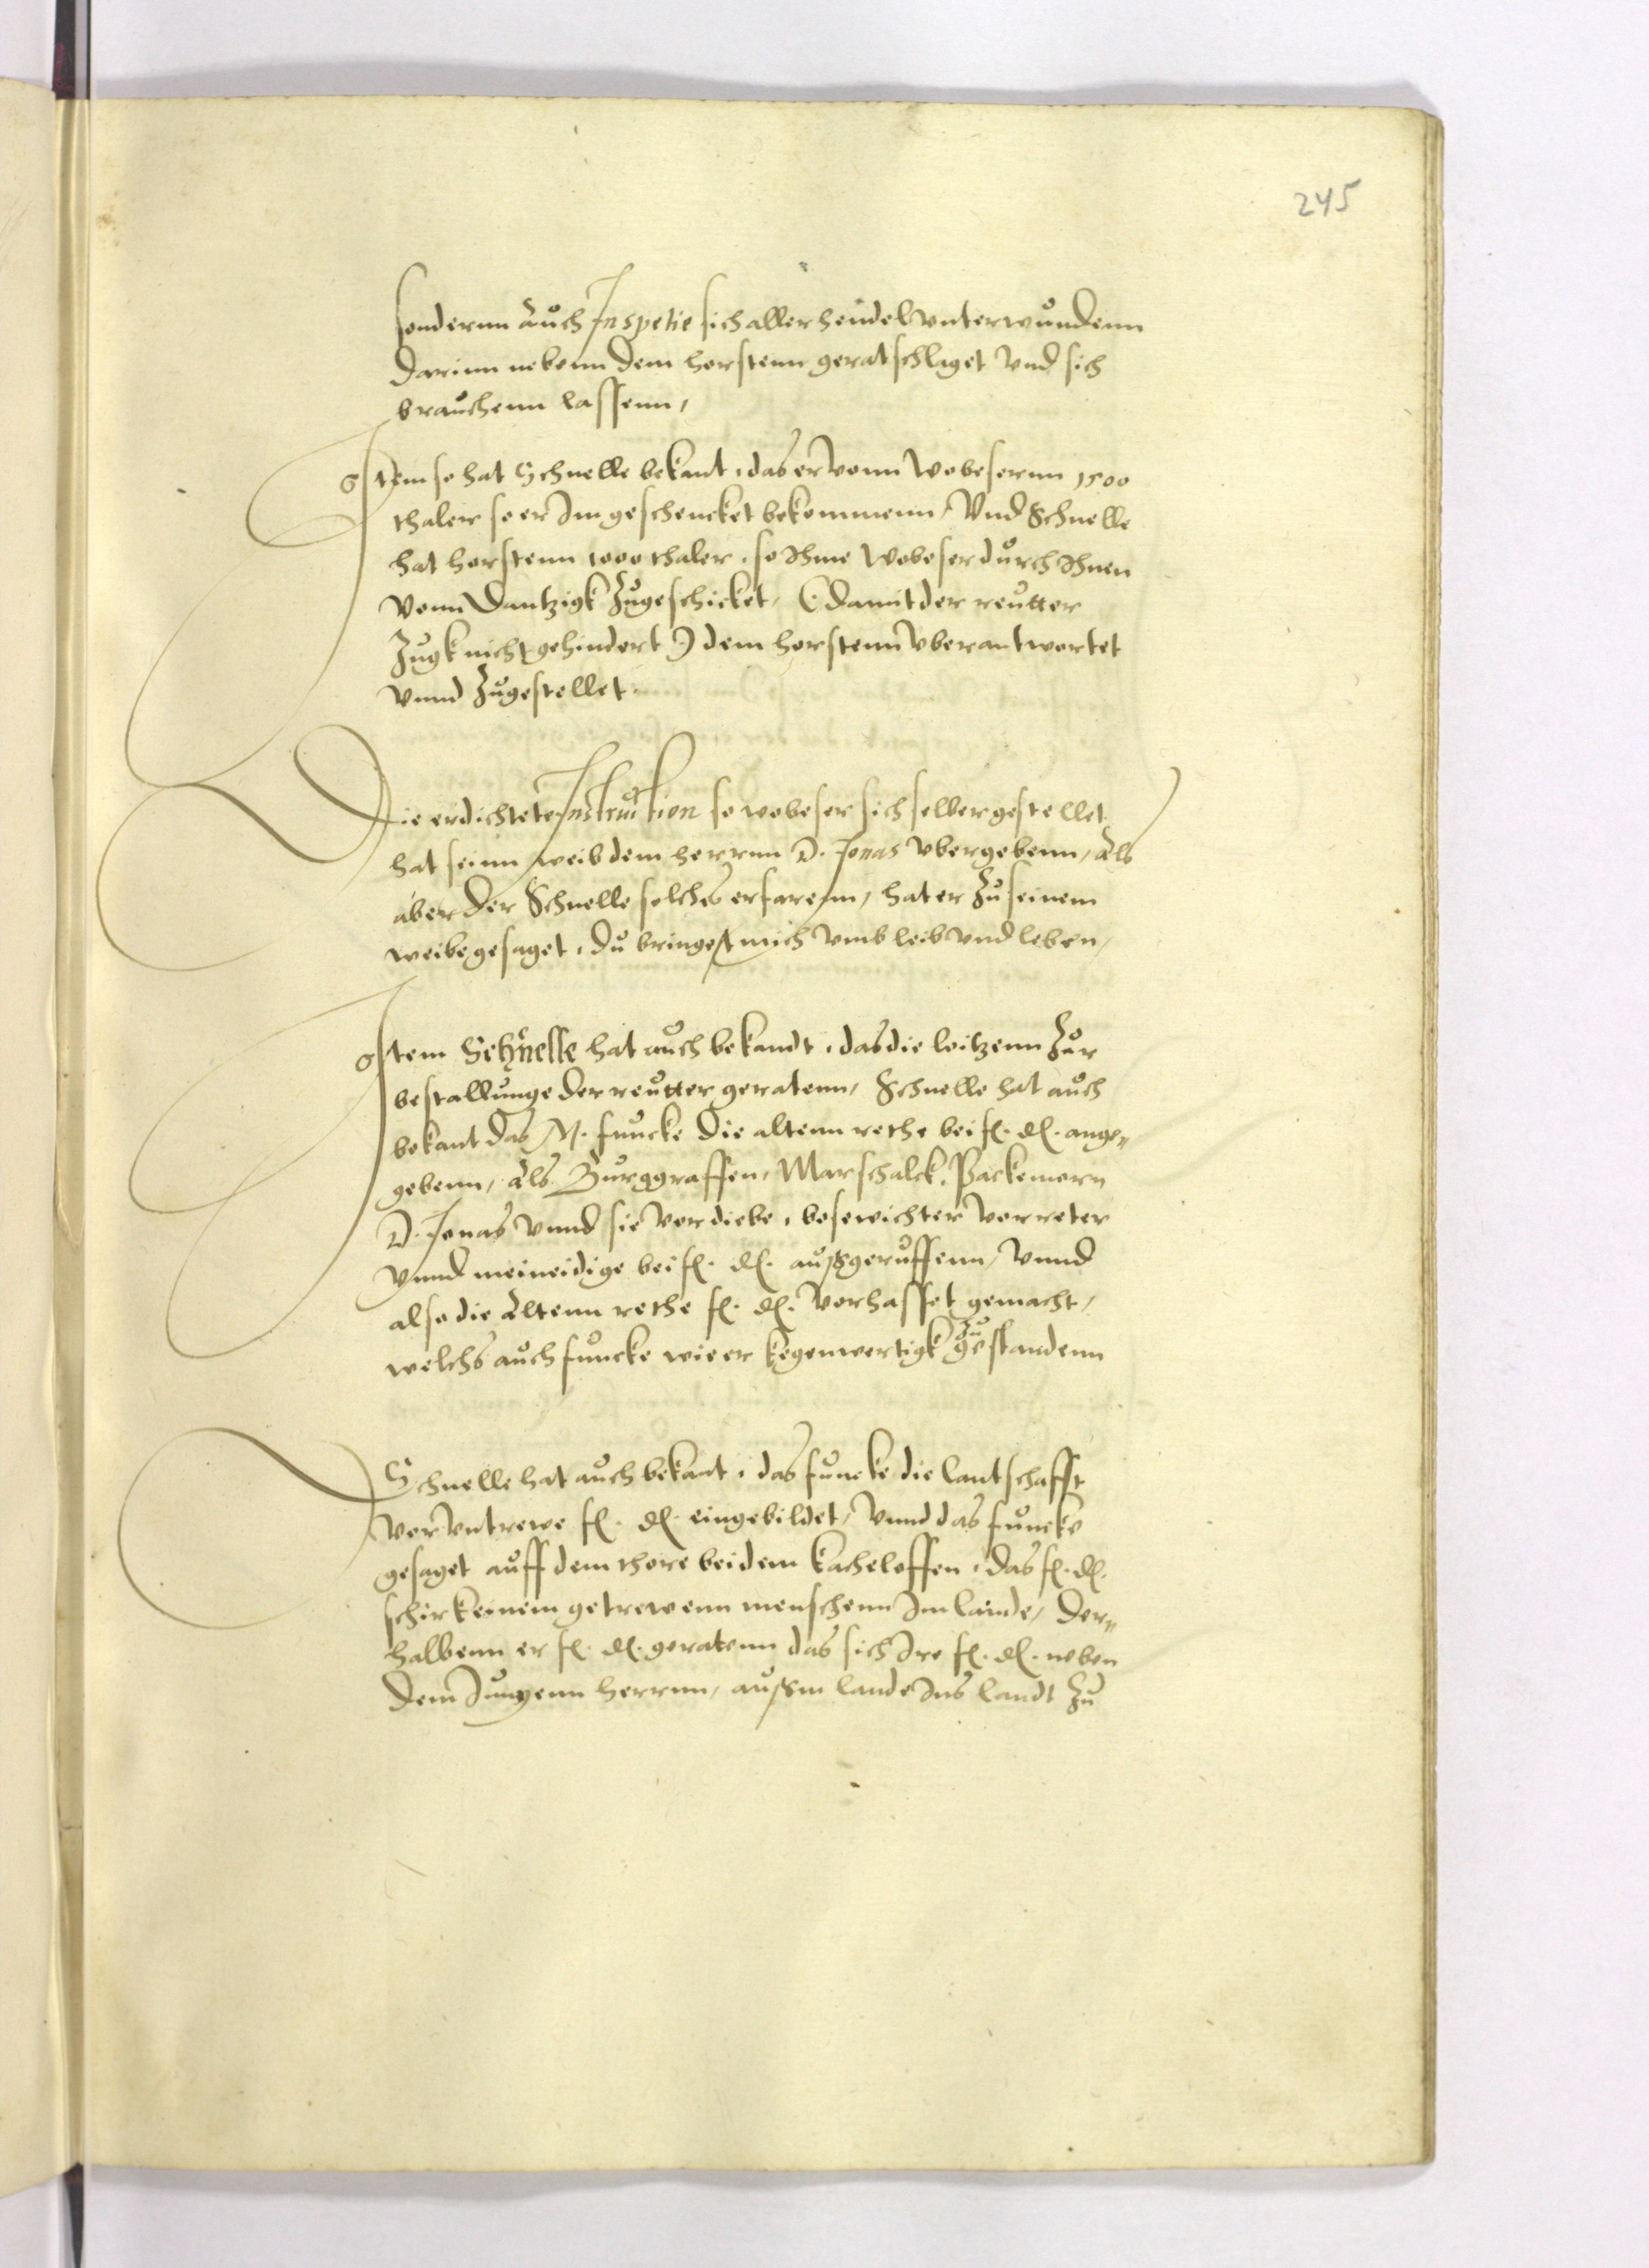 245
sondernn auch Inspetie sich aller hendel vnterwundenn
darinn nebenn dem horstenn geratschlaget vnd sich
brauchenn lassenn,
Item so hat Schnelle bekant, das er vonn wobesernn 1500
thaler so er im geschencket bekommenn, Vnd Schnelle
hat horstenn 1000 thaler, so ihme wobeser durch ihnen
vonn Dantzigk zugeschicket, (: damit der reutter
zugk nicht gehindert :) dem horstenn vberantwortet
vnnd zugestellet.
Die erdichtete Instruction so wobeser sich selber gestellet
hat seinn weib dem herrnn D. Jonas vbergebenn, als
aber der Schnelle solches erfarenn, hat er zu seinem
weibe gesaget, du bringest mich vmb leib vnd leben,
Item Schnelle hat auch bekandt, das die leitzenn zur
bestallunge der reutter geratenn, Schnelle hat auch
bekant das M. funcke die altenn rethe bei f. d. ange„
gebenn, als Burggraffen, Marschalck, Packemorn
D. Jonas vnnd sie vor diebe, bosewichter vorreter
vnnd meineidige bei f. d. außgeruffenn, vnnd
also die altenn rethe f. d. vorhasset gemacht,
welchs auch funcke wie er kegenwertigk zu gestandenn
Schnelle hat auch bekant, das funcke die lantschafft
vor vntrewe f. d. eingebildet, vnnd das funcke
gesaget auff dem thore bei dem kacheloffen, das f. d.
schir keinem getrewenn menschenn im lande, der„
halbenn er f. d. geratenn das sich ire f. d. neben
dem Jungenn herrnn, außm lande ins landt zu